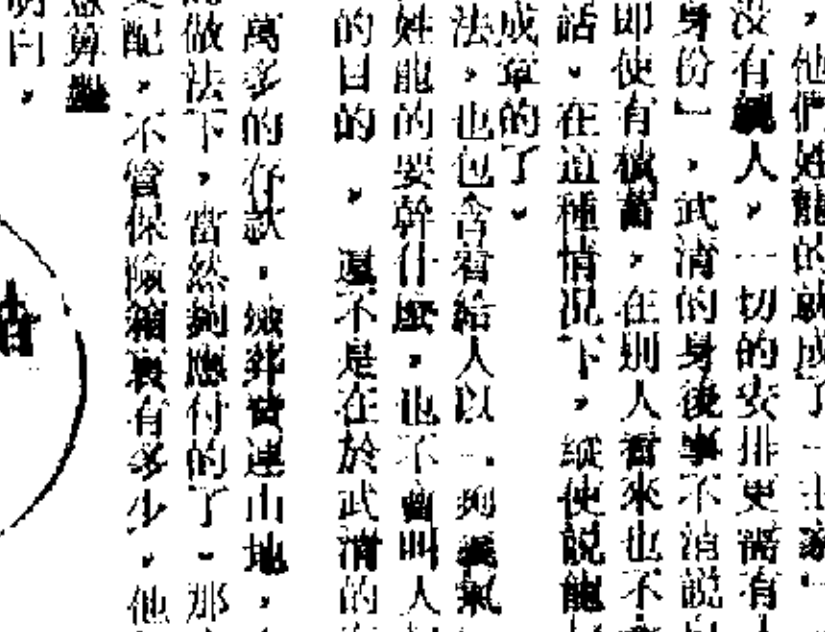 ，他們姓龍的就成了「主家」
沒有親人，一切的安排更需有人
身份」，武清的身後事不消說
即使有積蓄，在別人看來也不
話。在這種情況下，縱使說龍
成章的了。
法，也包含着給人以一夠義氣
姓龍的要幹什麼，也不會叫人
的目的，還不是在於武清的
萬多的存款，殯葬費連山地，
做法下，當然夠應付的了。那
配，不管保險箱裏有多少，他
算盤
明白，